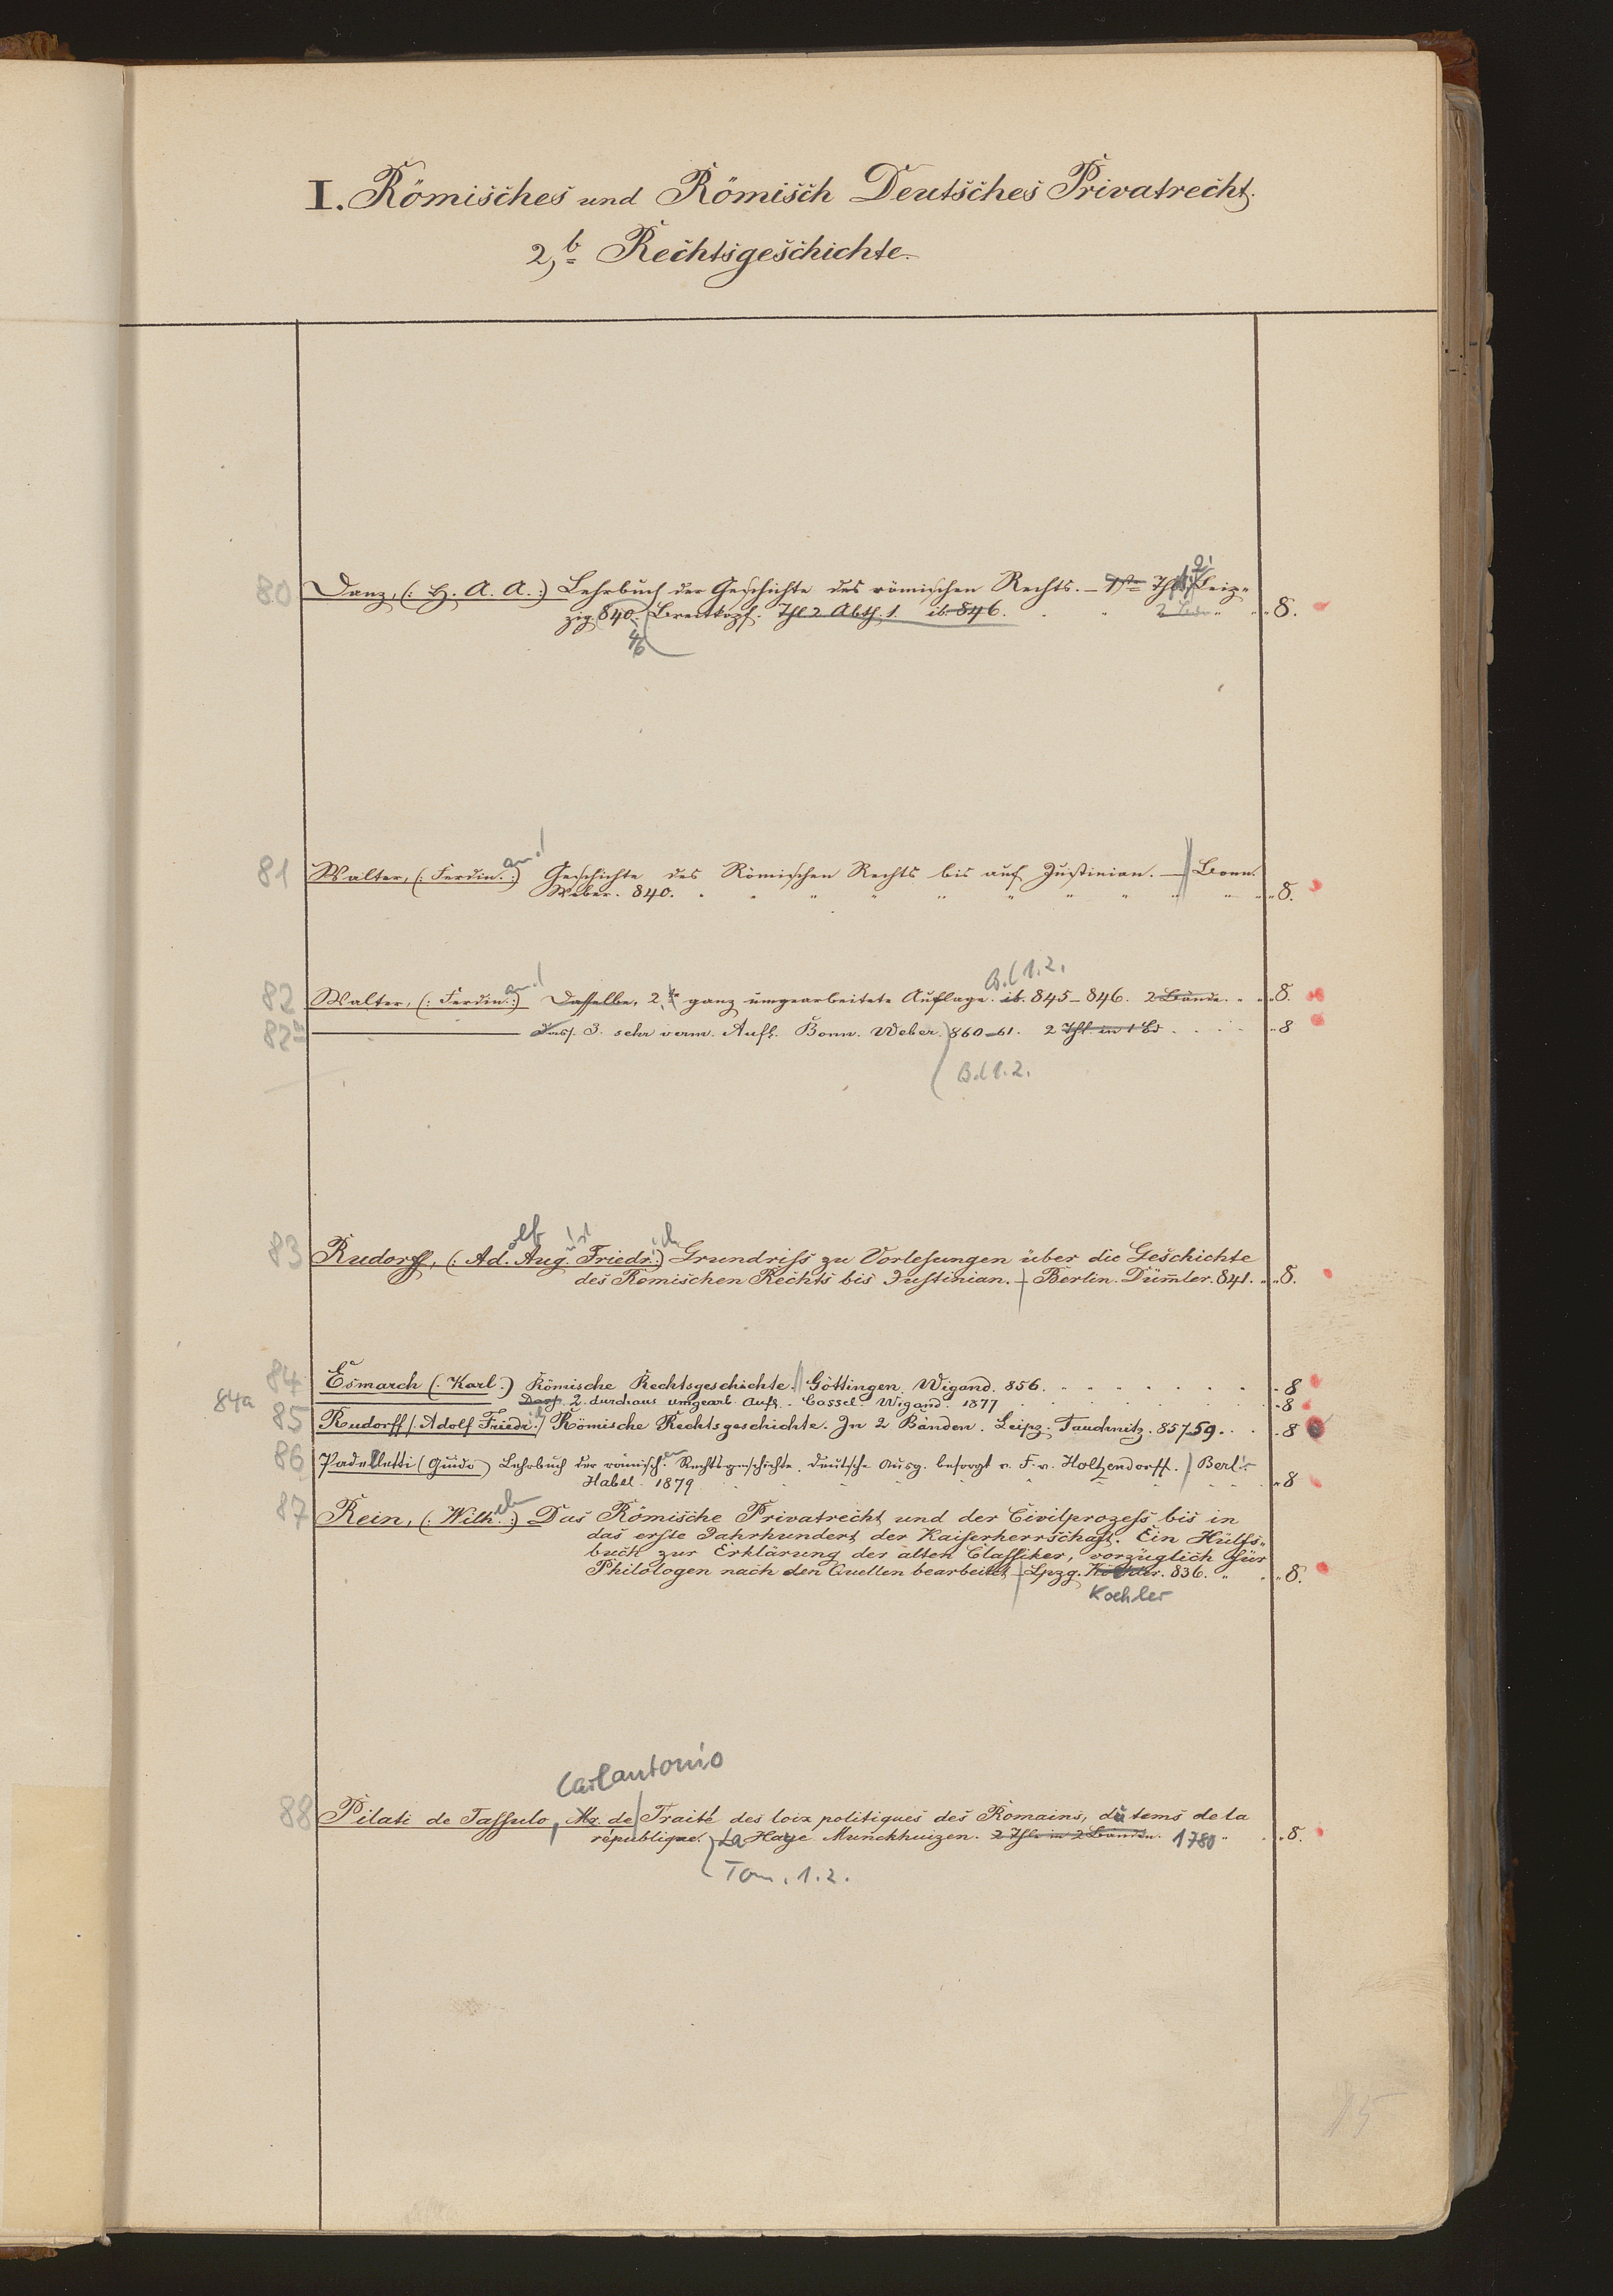 I. Römisches und Römisch Deutsches Privatrecht.
2,b Rechtsgeschichte.
80 Danz, (: H. A. A. :) Lehrbuch der Geschichte des römischen Rechts. — 1ste Thl. Leip„
zig 840. Breitkopf. Thl 2 Abth. 1. ib. 846. „ 8.
46
81 Walter, (: Ferdin. :) Geschichte des Römischen Rechts bis auf Justinian. — Bonn.
Weber. 840. „ 8.
Bd 1.2.
82 Walter, (: Ferdin. :) Dasselbe, 2te ganz umgearbeitete Auflage. ib. 845–846. 2 Bände. „ 8.
82a Dass. 3. sehr verm. Aufl. Bonn. Weber. 860–61. 2 Thl. in 1 Bd „ 8
Bd 1.2.
83 Rudorff, (: Ad. Aug. Friedr. :) Grundriss zu Vorlesungen über die Geschichte
des Römischen Rechts bis Justinian. – Berlin. Dümler. 841. „ 8.
84 Esmarch (: Karl :) Römische Rechtsgeschichte. Göttingen. Wigand. 856. „ 8
84a Dass. 2. durchaus umgearb. Aufl. Cassel. Wigand. 1877 „ 8
85 Rudorff (: Adolf Friedr. :) Römische Rechtsgeschichte. In 2 Bänden. Leipz. Tauchnitz. 857–59. „ 8
86 Padelletti (Guido) Lehrbuch der römisch. Rechtsgeschichte. Deutsche Ausg. besorgt v. F. v. Holtzendorff. Berl.
Habel. 1879 „ 8
87 Rein, (: Wilh. :) Das Römische Privatrecht und der Civilprozess bis in
das erste Jahrhundert der Kaiserherrschaft. Ein Hülfs„
buch zur Erklärung der alten Classiker, vorzüglich für
Philologen nach den Quellen bearbeitet – Lpzg. 836. „ 8.
Koehler
Carlantonio
88 Pilati de Tassulo, Mr. de Traité des loix politiques des Romains, du tems de la
république. La Haye Munckhuizen. 2 Thle in 2 Bänden. 1780 „ 8.
Tom. 1.2.